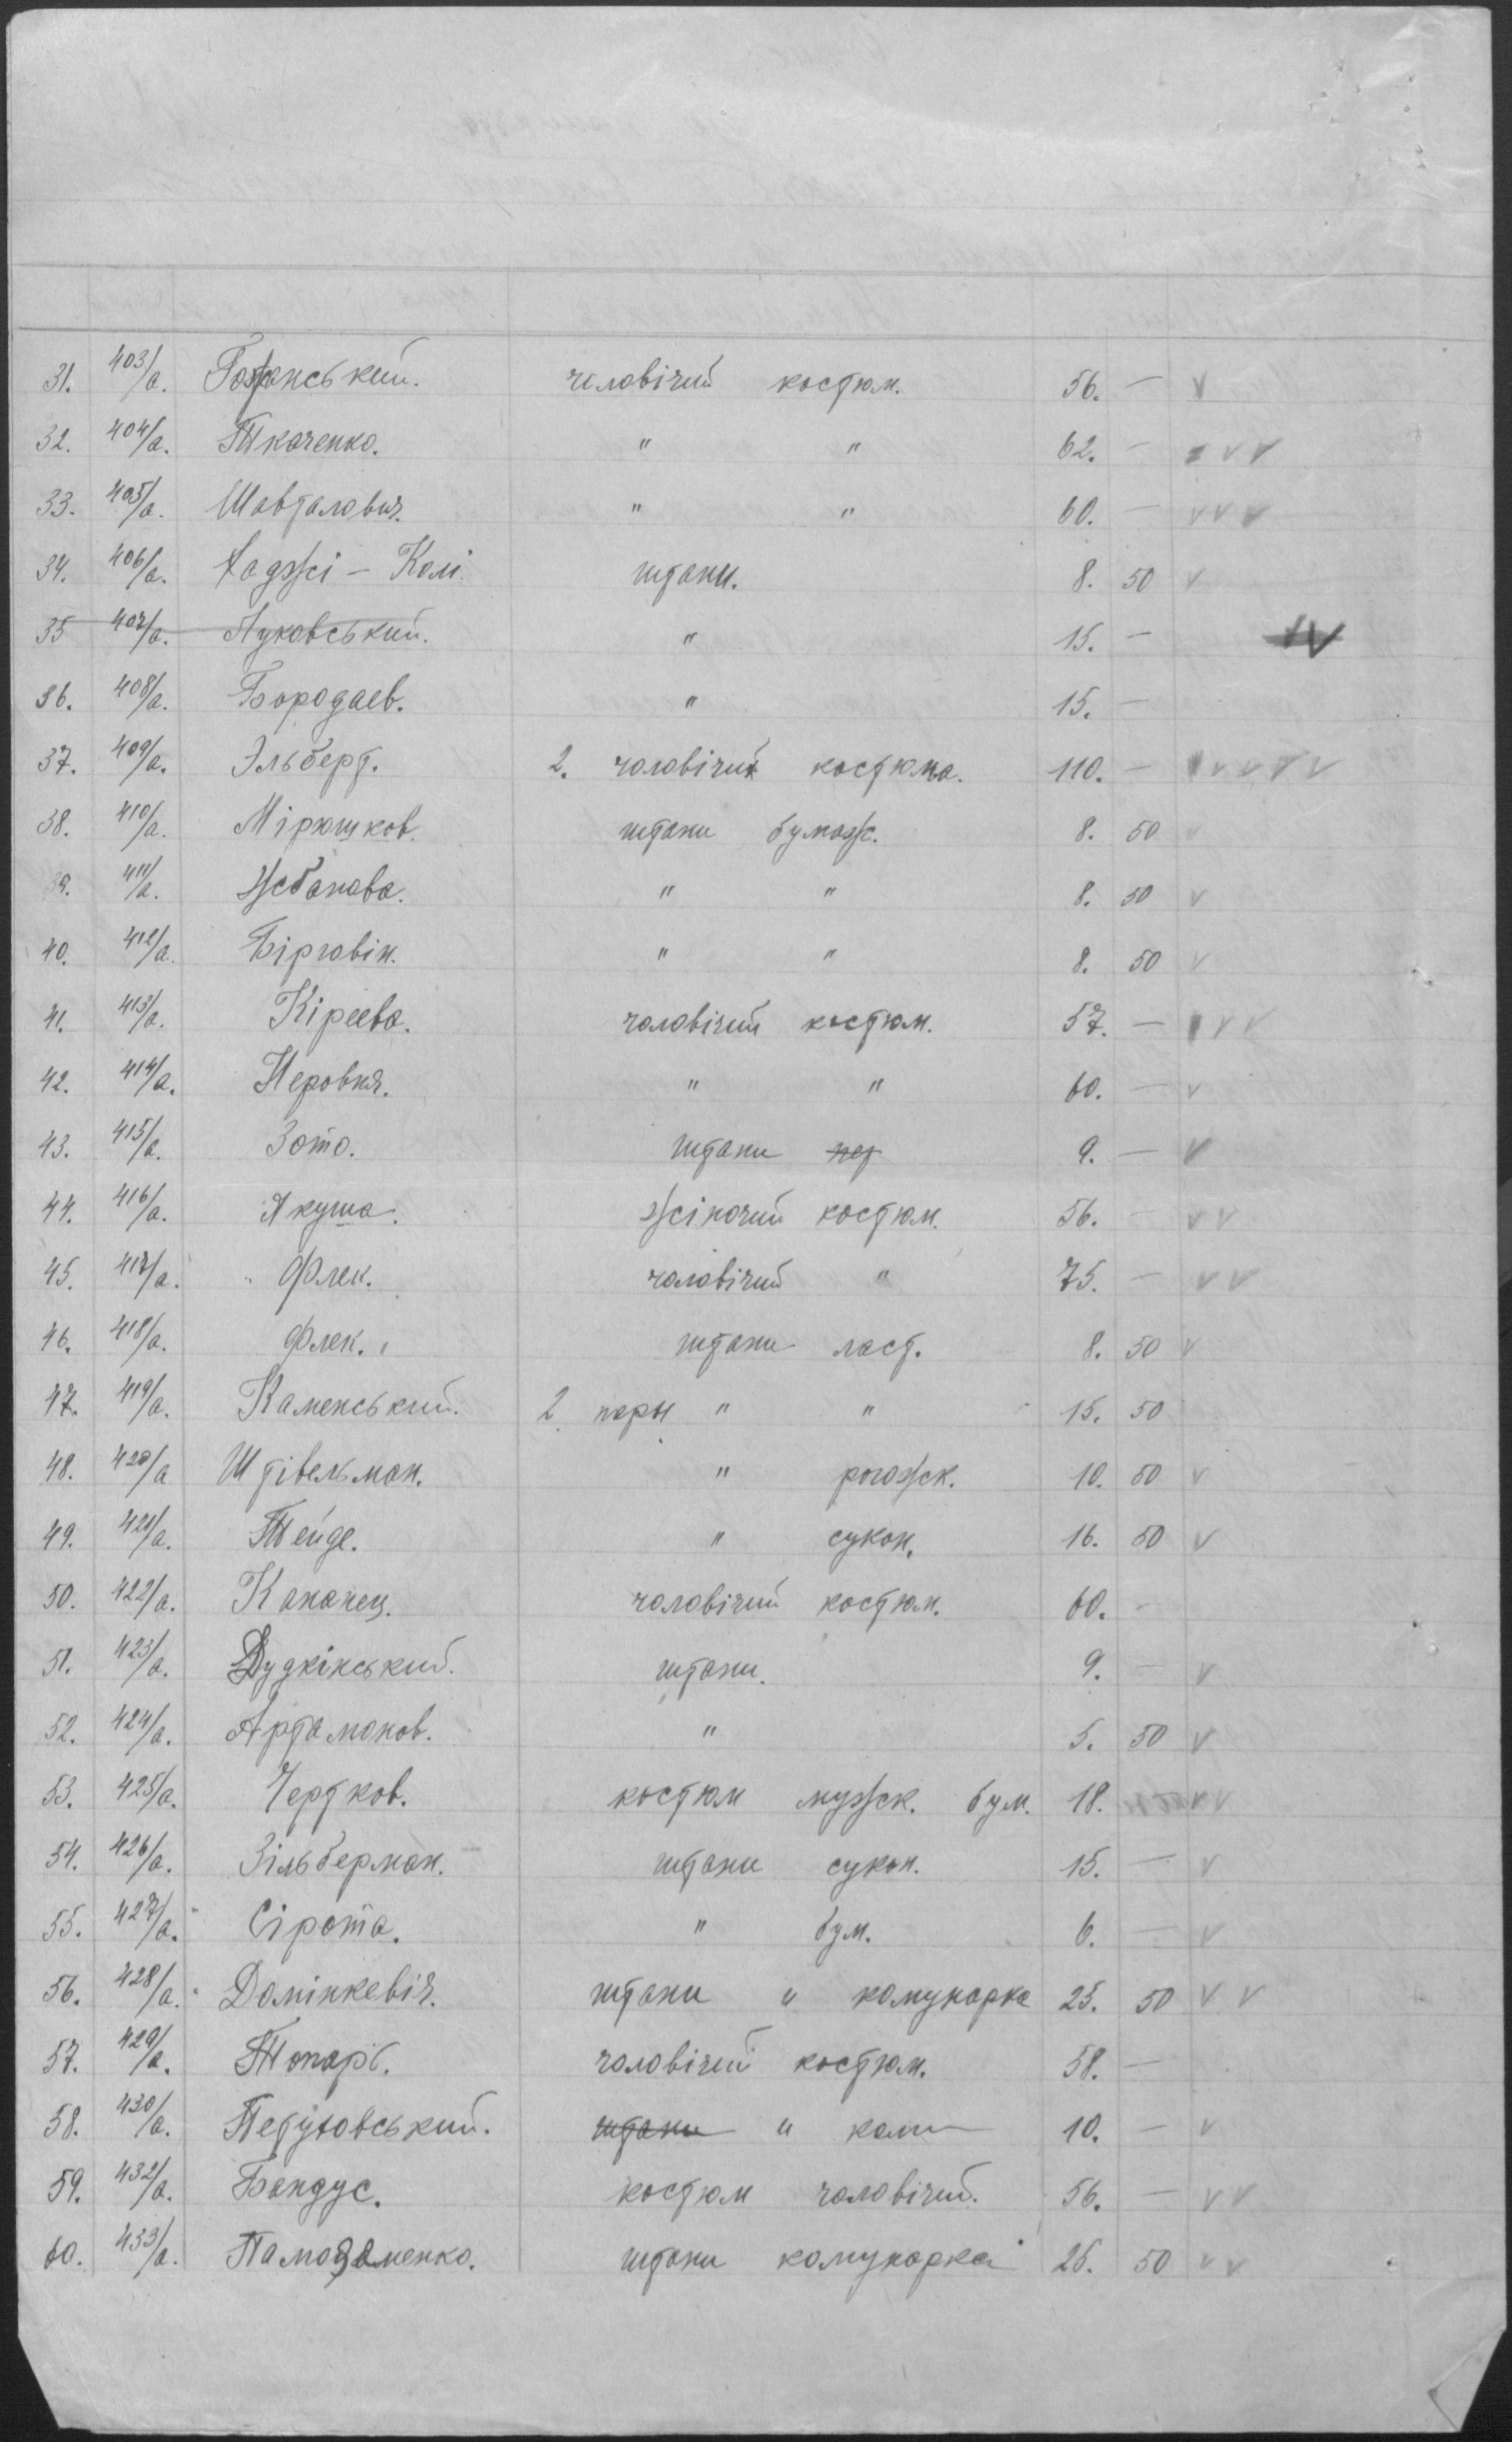 31. 403/а. Гожанський. чоловічий костюм. 56. — v
32. 404/а. Ткаченко. " " 62. — v v v
33. 405/а. Шавталович. " " 60. — v v v
34. 406/а. Хаджі – Колі. штани. 8. 50 v
35 407/а. Луковський. " 15. — v v
36. 408/а. Бородаев. " 15. —
37. 409/а. Эльберт. 2. чоловічих костюма. 110. — v v v v v
38. 410/а. Мірюшков. штани бумаж. 8. 50 v
39. 411/а. Жбанова. " " 8. 50 v
40. 412/а. Бірговін. " " 8. 50 v
41. 413/а. Кіреева. чоловічий костюм. 57. — v v v
42. 414/а. Неровня. " " 60. — v
43. 415/а. Зото. штани 9. — v
44. 416/а. Якуша. жіночий костюм. 56. — v v
45. 417/а. Флек. чоловічий " 75. — v v
46. 418/а. Флек. штани ласт. 8. 50 v
47. 419/а. Каменський. 2 пары " " 15. 50
48. 420/а Штівельман. " рогожск. 10. 50 v
49. 421/а. Тейде. " сукон. 16. 50 v
50. 422/а. Кананец. чоловічий костюм. 60. -
51. 423/а. Дудкінський. штани. 9. — v
52. 424/а. Артамонов. " 5. 50 v
53. 425/а. Чертков. костюм мужск. бум. 18. v v
54. 426/а. Зільберман. штани сукон. 15. — v
55. 427/а. Сірота. " бум. 6. — v
56. 428/а. Домінкевіч. штани и комунарка 25. 50 v v
57. 429/а. Топарь. чоловічий костюм. 58. —
58. 430/а. Петуховський. штани и ком 10. — v
59. 432/а. Бандус. костюм чоловічий. 56. — v v
60. 433/а. Памазаменко. штани комунарка 26. 50 v v